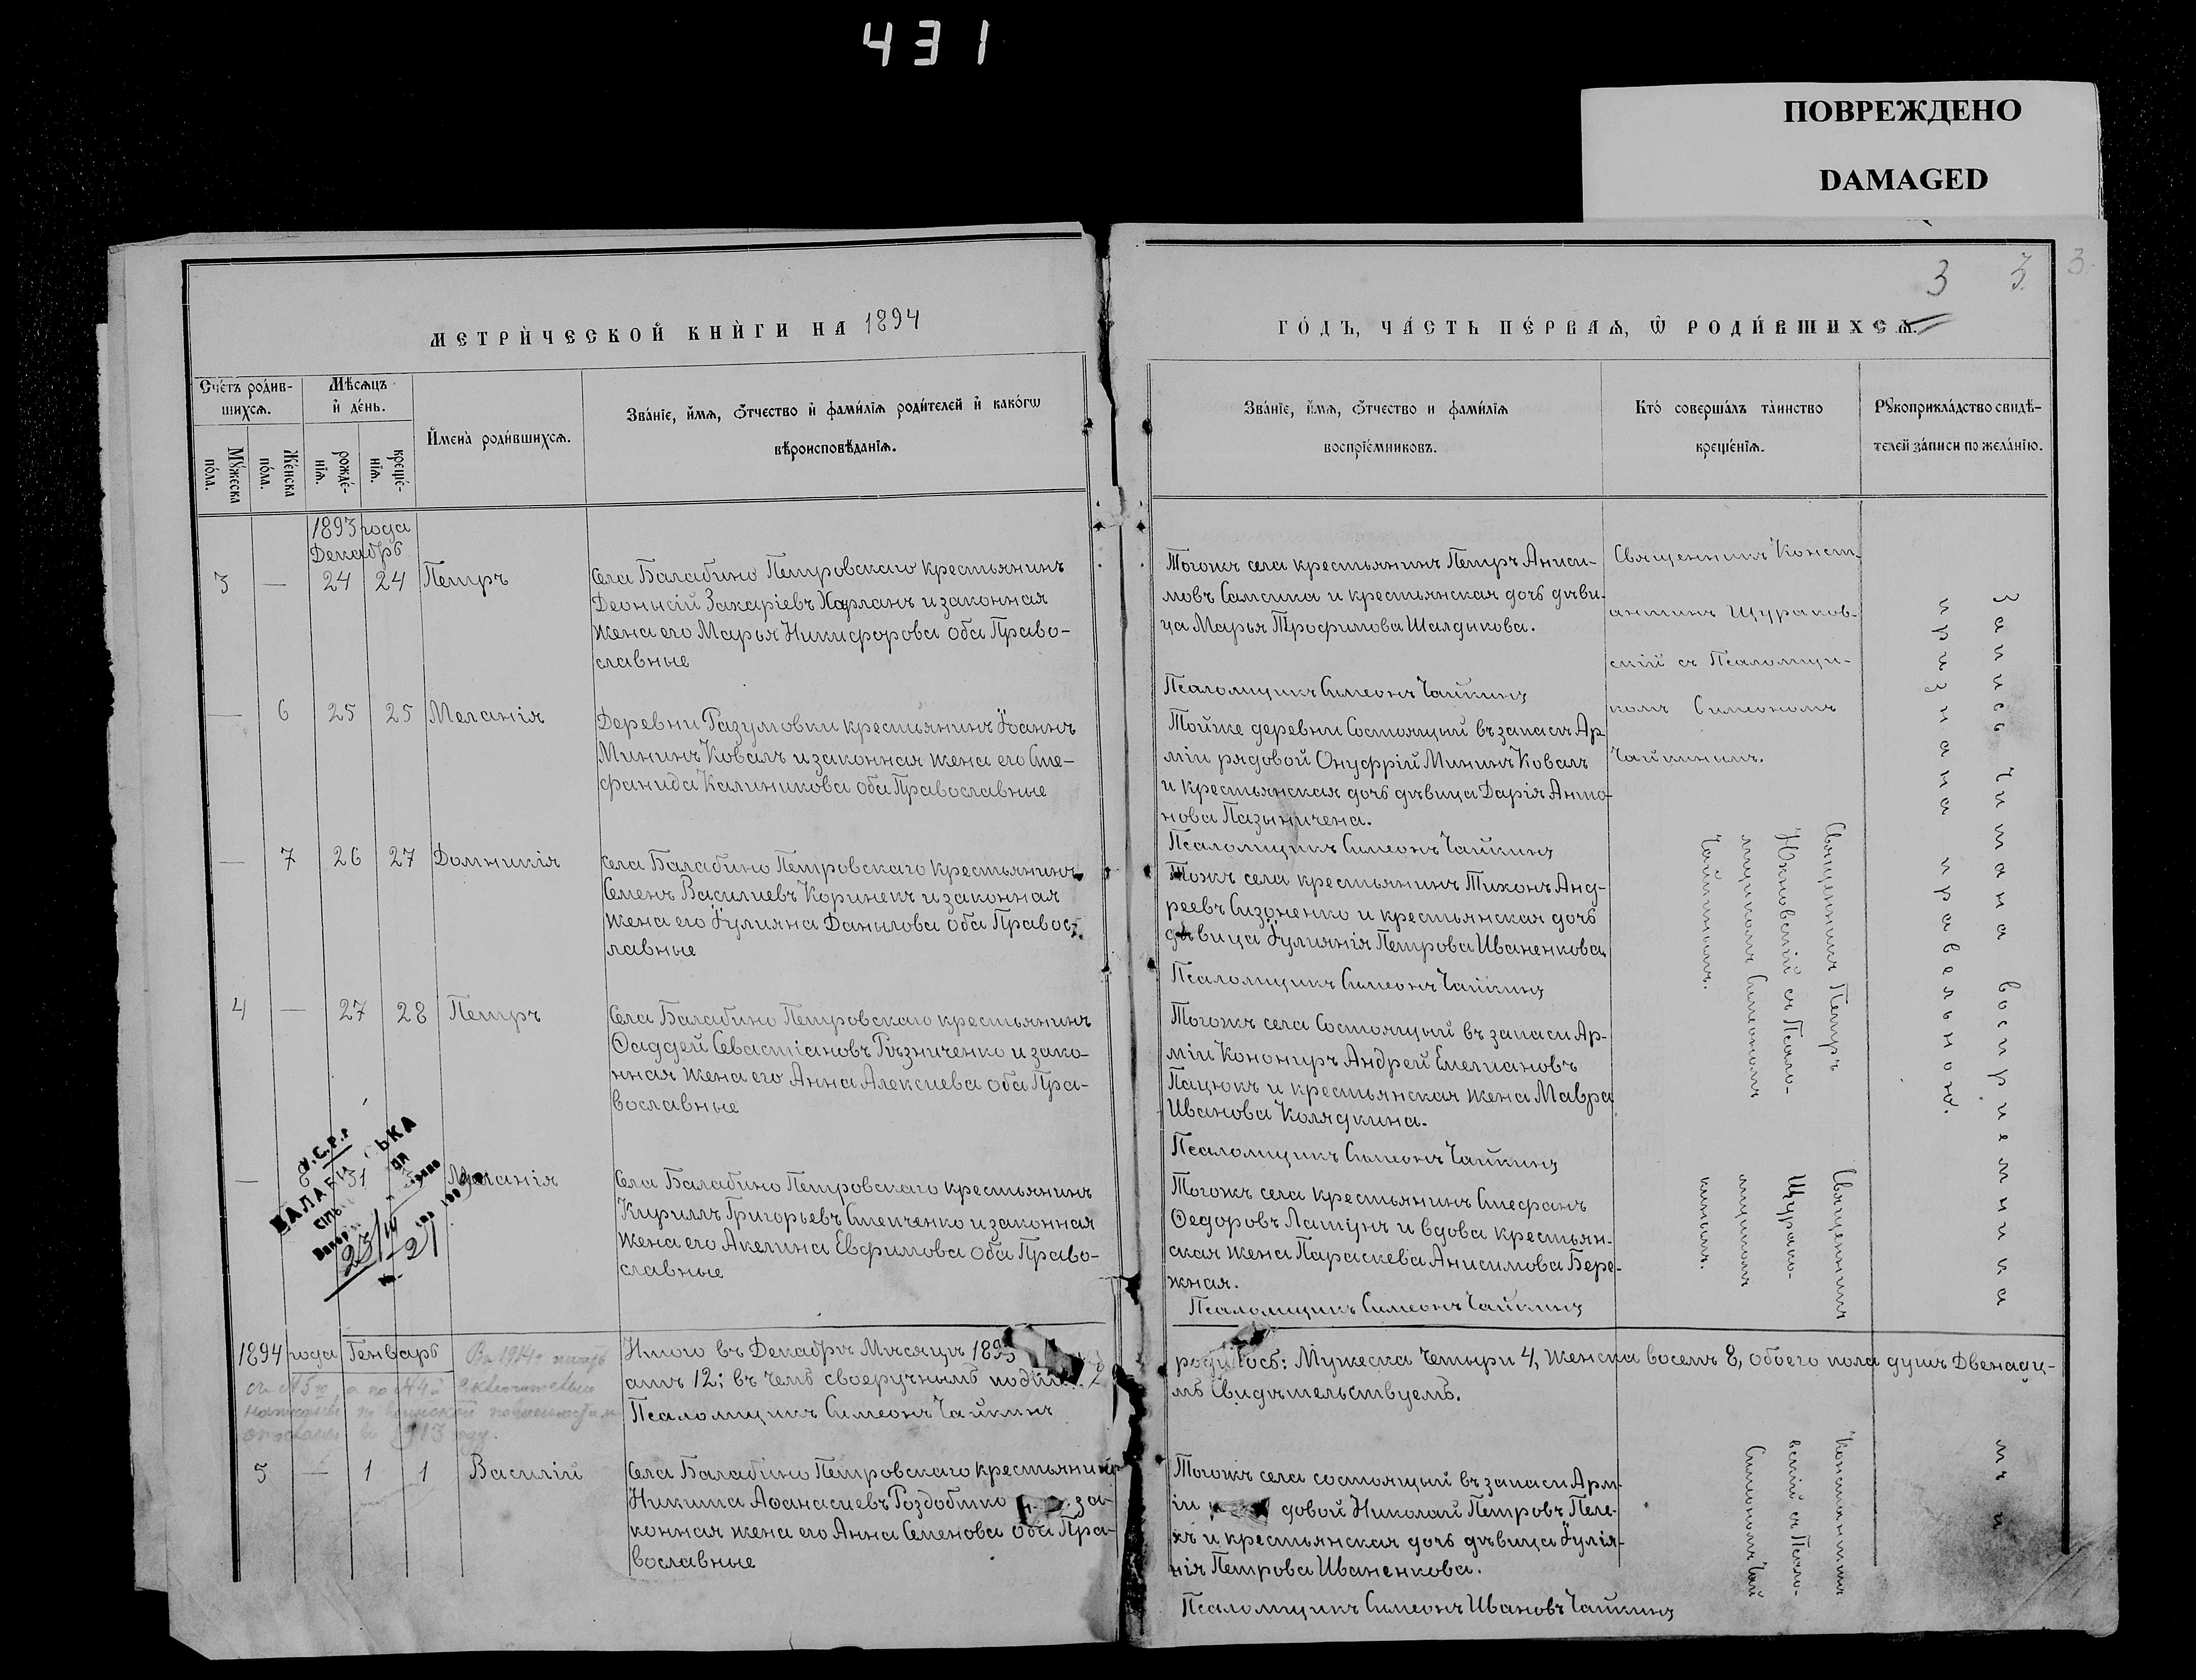 431
ПОВРЕЖДЕНО
DAMAGED
3 3. 3.
МЕТРИ́ЧЕСКОЙ КНИ́ГИ НА 1894
ГО́ДЪ, ЧА́СТЬ ПЕ́РВАѦ, Ѿ РОДИ́ВШИХСѦ.
Сче́тъ роди́в-
шихсѧ.
Мꙋ́жеска
по́ла.
Же́нска
по́ла.
Мѣ́сѧцъ
и҆ де́нь.
рожде́-
нїѧ.
креще́-
нїѧ.
И҆мена̀ роди́вшихсѧ.
Зва́нїе, и҆́мѧ, ѻ҆́тчество и҆ фами́лїѧ роди́телей и҆ како́гѡ
вѣроисповѣ́данїѧ.
Зва́нїе, и҆́мѧ, ѻ҆́тчество и фами́лїѧ
воспрїе́мниковъ.
Кто̀ соверша́лъ та́инство
креще́нїѧ.
Рꙋкоприкла́дство свидѣ́-
телей за́писи по жела́нїю.
1893 года
Декабрь
3 — 24 24 Петръ
Села Балабино Петровскаго крестьянинъ
Деонысій Захаріевъ Харланъ и законная
жена его Марья Никифорова оба Право-
славные
Тогожъ села крестьянинъ Петръ Аниси-
мовъ Самсика и крестьянская дочь дѣви-
ца Марья Трофимова Шалдыкова.
Псаломщикъ Симеонъ Чайкинъ
Священникъ Конст-
антинъ Щураков-
скій съ Псаломщи-
комъ Симеономъ
Чайкинымъ.
— 6 25 25 Меланія
Деревни Разумовки крестьянинъ Іоаннъ
Мининъ Коваль и законная жена его Сте-
фанида Калиникова оба Православные
Тойже деревни Состоящый въ запасѣ Ар-
міи рядовой Онуфрій Мининъ Коваль
и крестьянская дочь дѣвица Дарія Анто-
нова Пазыничена.
Псаломщикъ Симеонъ Чайкинъ
— 7 26 27 Домникія
Села Балабино Петровскаго крестьянинъ
Семенъ Василиевъ Коринекъ и законная
жена его Іулияна Данылова оба Правос-
лавные
Тожъ села крестьянинъ Тихонъ Анд-
реевъ Сизоненко и крестьянская дочь
дѣвица Іулиянія Петрова Иваненкова
Псаломщикъ Симеонъ Чайкинъ
Священникъ Петръ
Псало-
мщикомъ Симеономъ
Чайкинымъ.
4 — 27 28 Петръ
Села Балабино Петровскаго крестьянинъ
Ѳаддей Севастіановъ Рѣзниченко и зако-
нная жена его Анна Алексиева оба Пра-
вославные
Тогожъ села Состоящый въ запаси Ар-
міи Кононирь Андрей Емелиановъ
Пацюкъ и крестьянская жена Мавра
Иванова Колядкина.
Псаломщикъ Симеонъ Чайкинъ
У.С.Р.Р
— 8 31 Меланія
Села Балабино Петровскаго крестьянинъ
Кириллъ Григорьевъ Степченко и законная
жена его Акелина Евфимова оба Право-
славные
Тогожъ села крестьянинъ Стефанъ
Ѳедоровъ Лапунъ и вдова крестьян-
ская жена Параскева Анисимова Бере-
жная.
Псаломщикъ Симеонъ Чайкинъ
Священникъ
Щурако-
Запись читана воспріемникамъ и
признана правельной.
1894 года Генварь
Итого въ Декабрѣ Мѣсяцѣ 1893
родилось: Мужеска Четыри 4, Женска восемъ 8, обоего пола душъ Двенадц-
ать 12; въ чемъ своеручнымъ
мъ Свидѣтельствуемъ.
Псаломщикъ Симеонъ Чайкинъ
5 — 1 1 Василій
Села Балабино Петровскаго крестьянинъ
Никита Аѳанасиевъ Роздобитко за-
конная жена его Анна Семенова оба Пра-
вославные
Тогожъ села состоящый въ запаси Арм-
іи довой Николай Петровъ Пеле-
хъ и крестьянская дочь дѣвица Іулія-
нія Петрова Иваненкова.
Псаломщикъ Симеонъ Ивановъ Чайкинъ
Константинъ
вскій съ Псало-
Симеономъ Чай